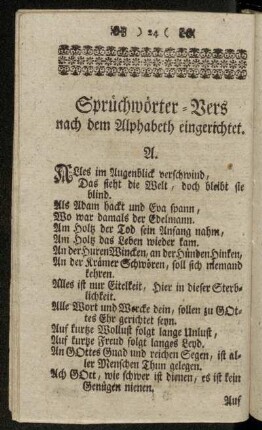 ) 24 (
Sprüchwörter-Vers
nach dem Alphabeth eingerichtet.
A.
ALles im Augenblick verschwind,
Das sieht die Welt, doch bleibt sie
blind.
Als Adam hackt und Eva spann,
Wo war damals der Edelmann.
Am Holtz der Tod sein Anfang nahm,
Am Holtz das Leben wieder kam.
An der Huren Wincken, an der Hunden Hinken,
An der Krämer Schwören, soll sich niemand
kehren.
Alles ist nur Eitelkeit, Hier in dieser Sterb-
lichkeit.
Alle Wort und Wercke dein, sollen zu GOt-
tes Ehr gerichtet seyn.
Auf kurtze Wollust folgt lange Unlust,
Auf kurtze Freud folgt langes Leyd.
An GOttes Gnad und reichen Segen, ist al-
ler Menschen Thun gelegen.
Ach GOtt, wie schwer ist dienen, es ist kein
Genügen nienen.
Auf